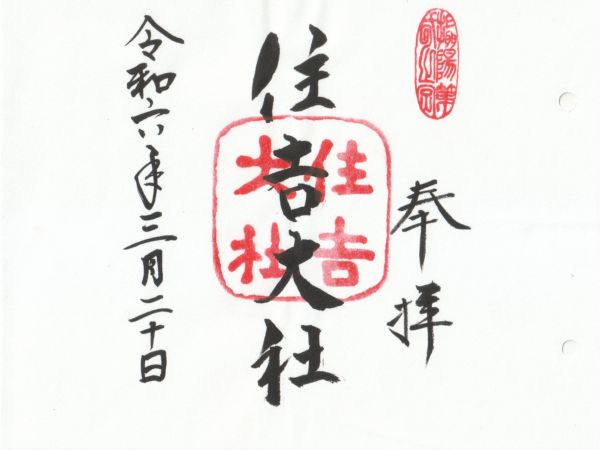 奉拝
住吉大社
住吉
大社
令和六年三月二十日